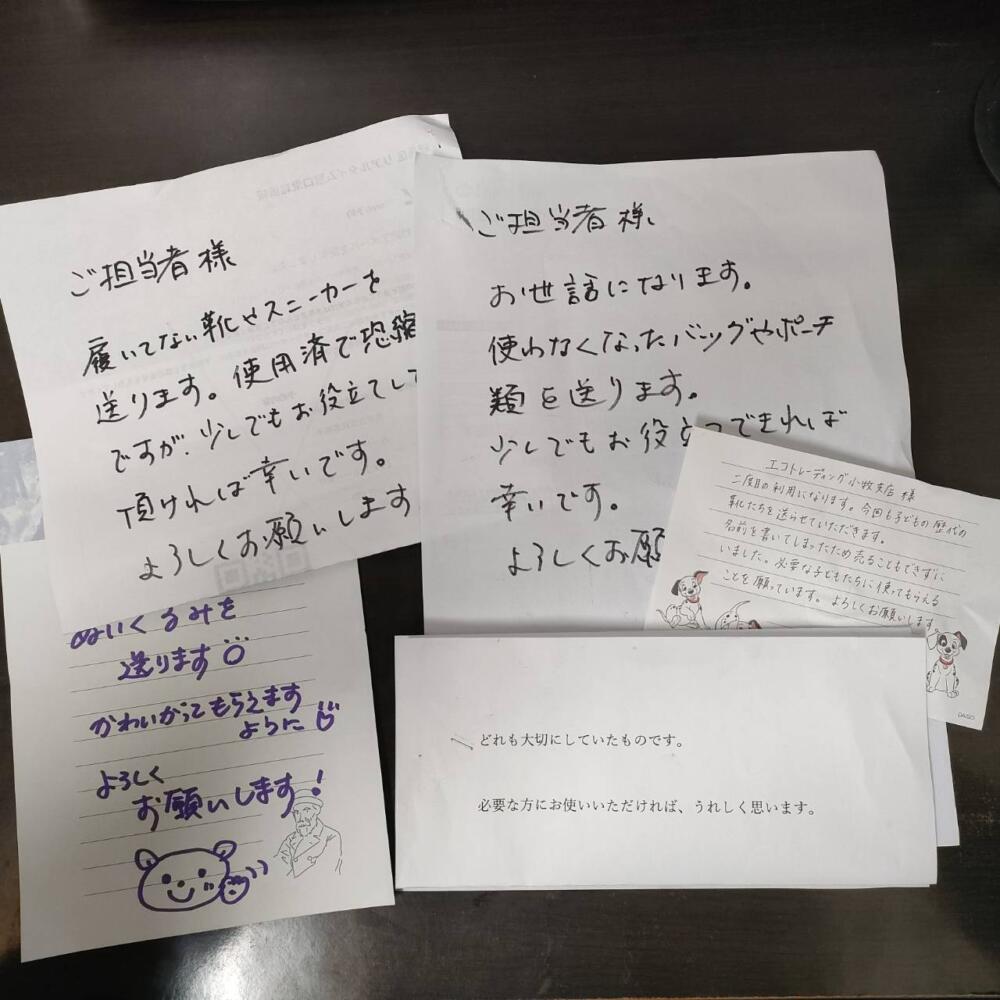 ご担当者様
履いてない靴やスニーカーを
送ります。使用済で恐縮
ですが、少しでもお役立てして
頂ければ幸いです。
よろしくお願いします
ご担当者様
お世話になります。
使わなくなったバッグやポーチ
類を送ります。
少しでもお役立つできれば
幸いです。
よろしくお願
エコトレーディング小牧支店 様
二度目の利用になります。今回も子どもの歴代の
靴たちを送らせていただきます。
名前を書いてしまったため売ることもできずに
いました。必要な子どもたちに使ってもらえる
ことを願っています。よろしくお願いします。
DAISO
ぬいぐるみを
送ります
かわいがってもらえます
ように
よろしく
お願いします!
どれも大切にしていたものです。
必要な方にお使いいただければ、うれしく思います。